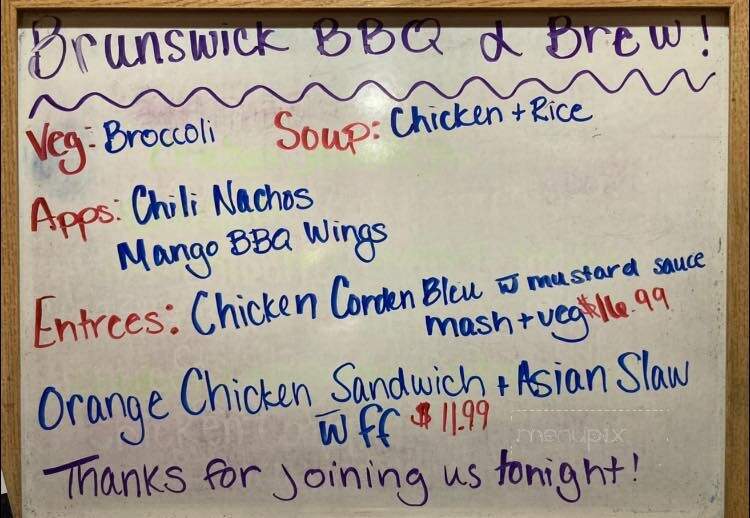 Brunswick BBQ & Brew!
Veg: Broccoli Soup: Chicken + Rice
Apps: Chili Nachos
Mango BBQ Wings
Entrees: Chicken Corden Bleu w̄ mustard sauce
mash + veg $16.99
Orange Chicken Sandwich + Asian Slaw
w̄ ff $11.99
menupix
Thanks for joining us tonight!